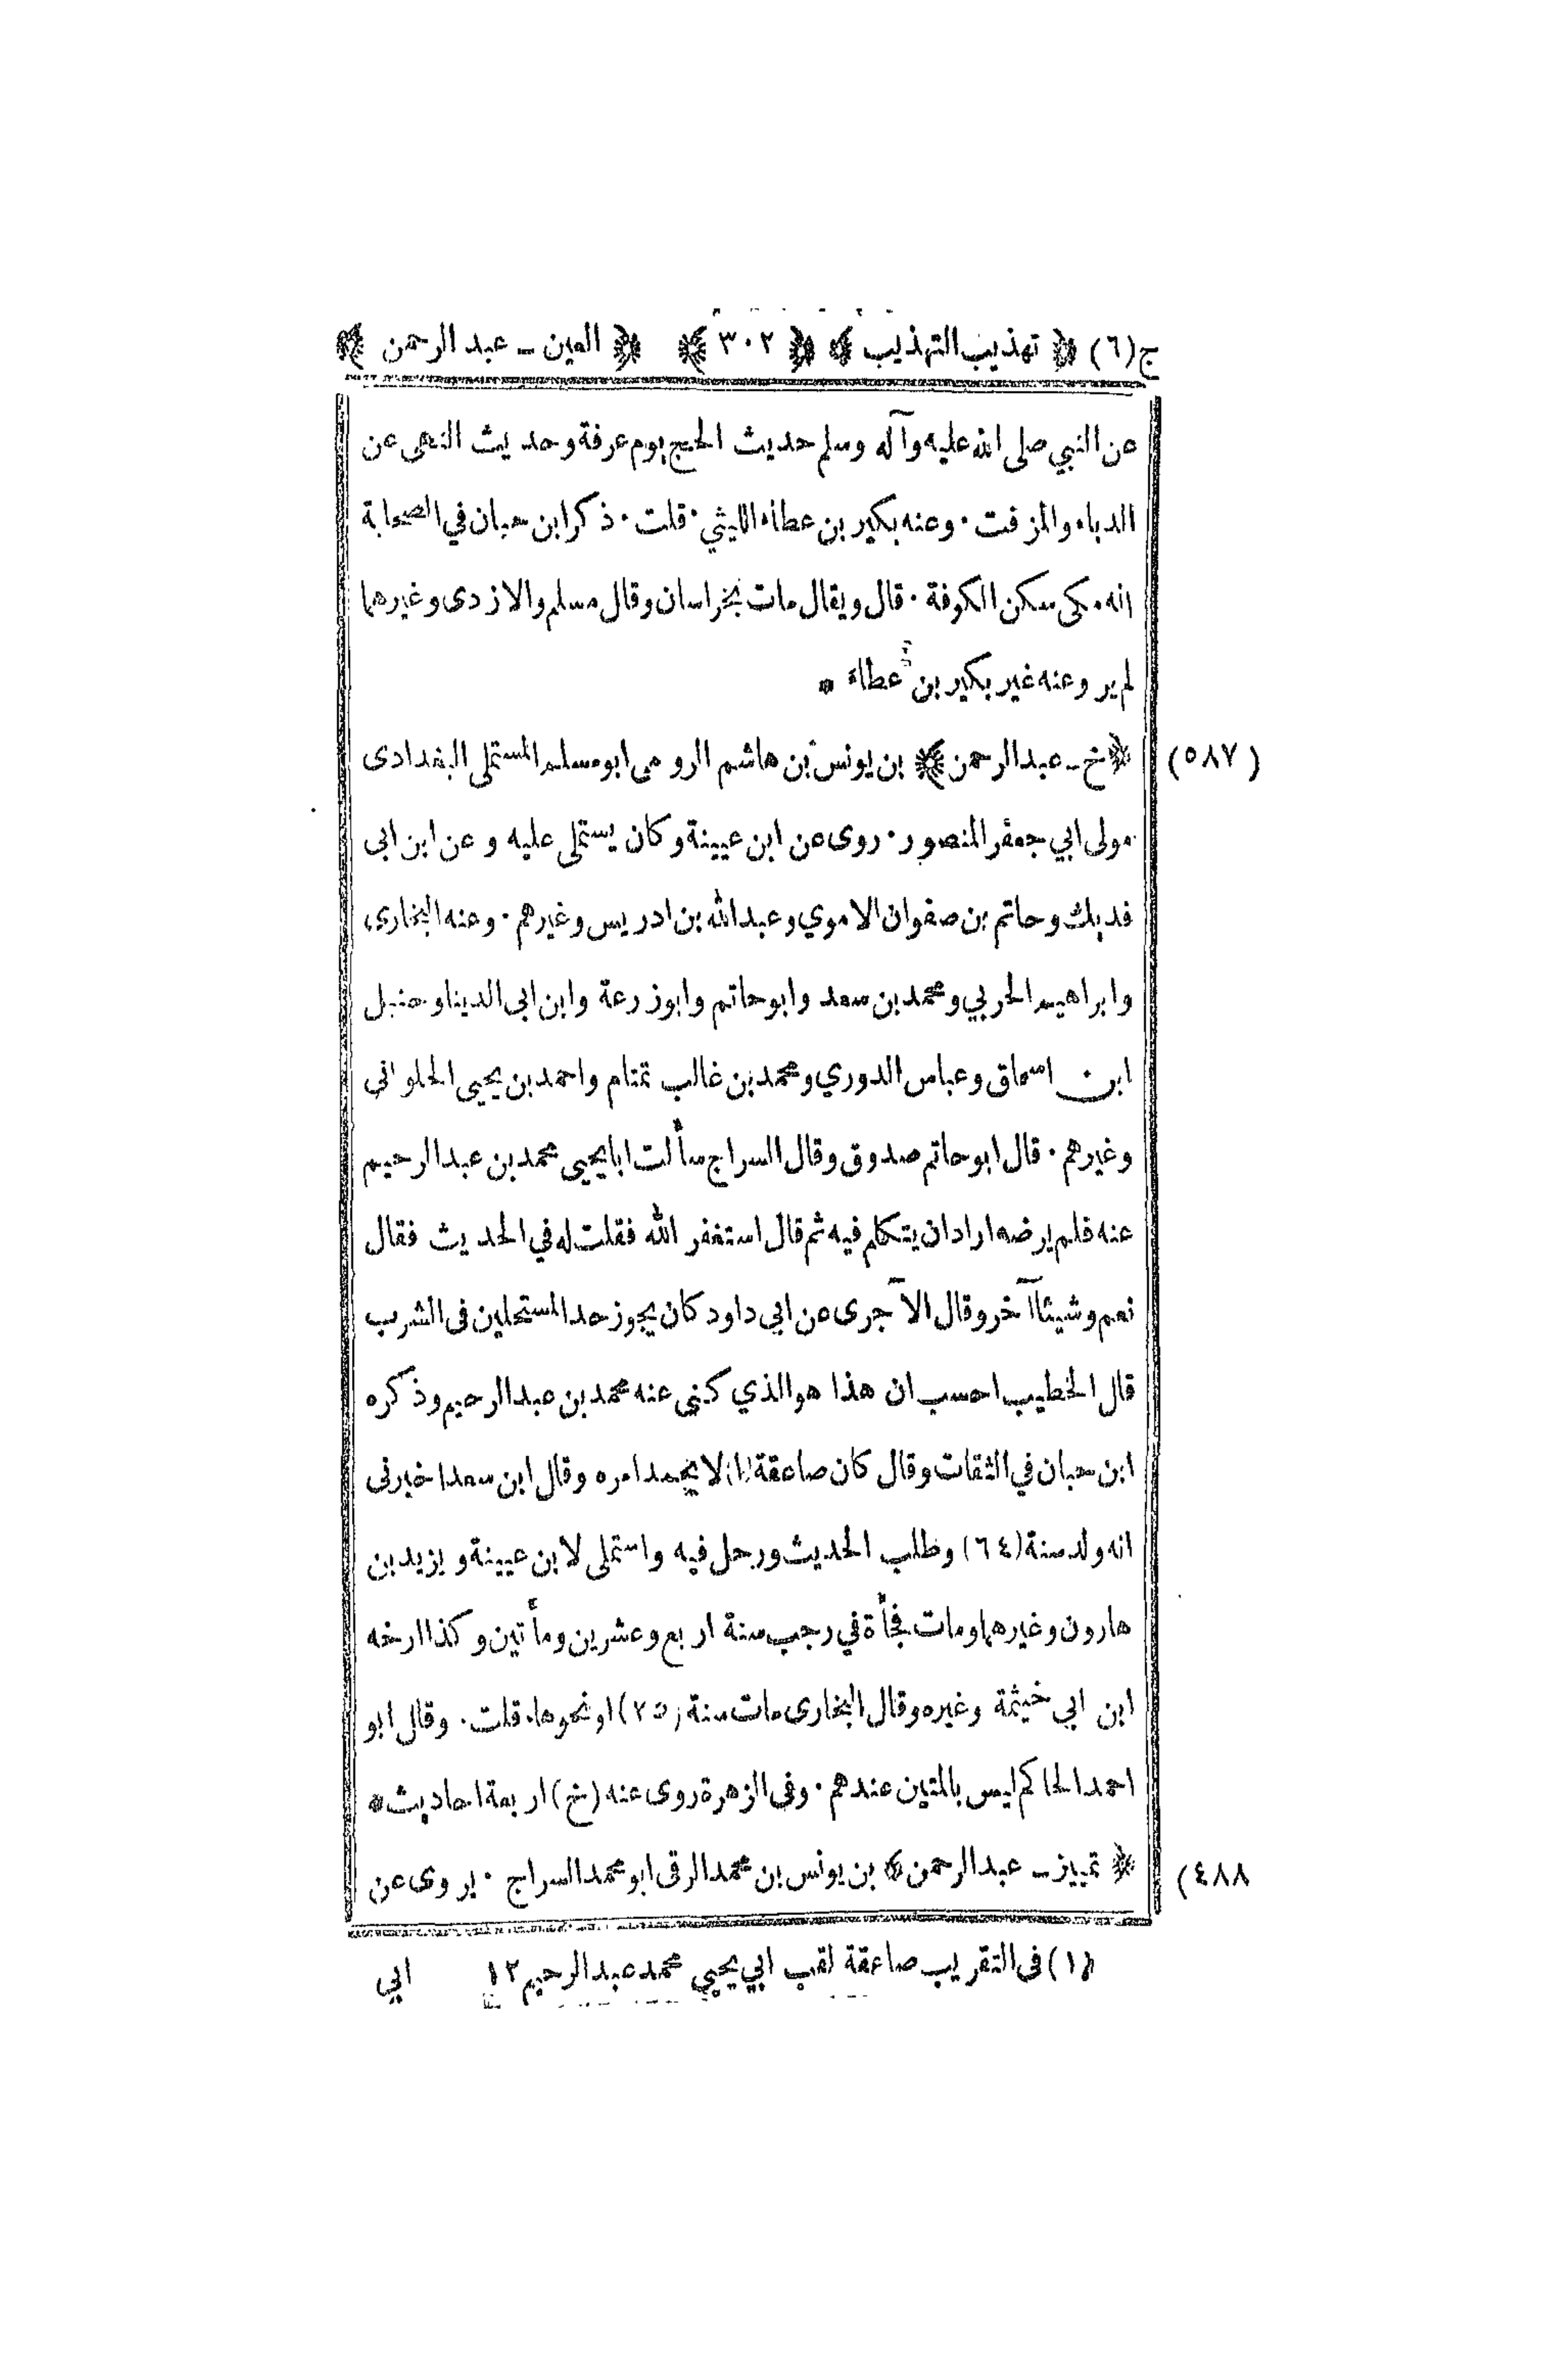 ج(٦) ﴿ تهذيب التهذيب ﴾ ﴿ ٣٠٢ ﴾ ﴿ العين ـ عبد الرحمن ﴾
عن النبي صلى الله عليه وآله وسلم حديث الحج يوم عرفة وحديث النهى عن
الدباء والمزفت · وعنه بكير بن عطاء الليثي · قلت · ذكر ابن حبان في الصحابة
انه مكى سكن الكوفة · قال ويقال مات بخراسان وقال مسلم والازدى وغيرهما
لم يرو عنه غير بكير بن عطاء *
(٥٨٧) ﴿ خ ـ عبد الرحمن ﴾ بن يونس بن هاشم الرومى ابو مسلم المستملى البغدادى
مولى ابي جعفر المنصور · روى عن ابن عيينة وكان يستملى عليه و عن ابن ابى
فديك وحاتم بن صفوان الاموي وعبد الله بن ادريس وغيرهم · وعنه البخاري
وابراهيم الحربي ومحمد بن سعد وابو حاتم وابو زرعة وابن ابى الدينا وحنبل
ابن اسحاق وعباس الدوري ومحمد بن غالب تمتام واحمد بن يحيى الحلوانى
وغيرهم · قال ابو حاتم صدوق وقال السراج سألت ابا يحيى محمد بن عبد الرحيم
عنه فلم يرضه اراد ان يتكلم فيه ثم قال استغفر الله فقلت له في الحديث فقال
نعم وشيئا آخر وقال الآجرى عن ابي داود كان يجوز حد المستحلين فى الشرب
قال الخطيب احسب ان هذا هو الذي كنى عنه محمد بن عبد الرحيم وذكره
ابن حبان في الثقات وقال كان صاعقة (١) لا يحمد امره وقال ابن سعد اخبرنى
انه ولد سنة (٦٤) وطلب الحديث ورحل فيه واستملى لابن عيينة ويزيد بن
هارون وغيرهما ومات فجأة في رجب سنة اربع وعشرين ومأتين وكذا ارخه
ابن ابي خيثمة وغيره وقال البخارى مات سنة (٢٥) او نحوها · قلت · وقال ابو
احمد الحاكم ليس بالمتين عندهم · وفى الزهرة روى عنه (خ) اربعة احاديث *
٤٨٨) ﴿ تمييز ـ عبد الرحمن ﴾ بن يونس بن محمد الرقى ابو محمد السراج · يروى عن
(١) فى التقريب صاعقة لقب ابي يحيي محمد عبد الرحيم ١٢ ابي